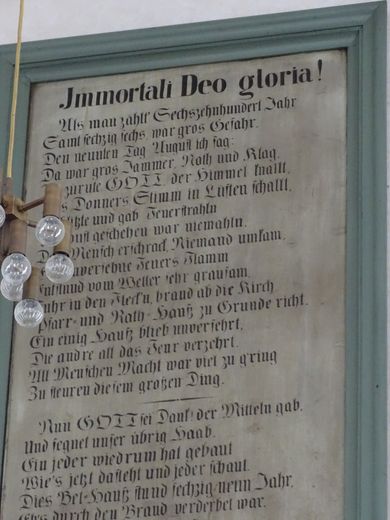 Immortali Deo gloria!
Als man zählt' Sechszehnhundert Jahr
Samt sechzig sechs, war gros Gefahr.
Den neunten Tag August ich sag:
Da war gros Jammer, Noth und Klag.
zurute GOTT, der Himmel knallt,
s Donners Stimm in Lüften schallt,
itzte und gab Feuerstrahln
unst geschehen war niemahln.
Mensch erschrack Niemand umkam,
versehne Feuers Flamm
Entstund vom Wetter sehr grausam,
uhr in den Fleck'n, brand ab die Kirch
Pfarr- und Rath-Hauß zu Grunde richt.
Ein einig Hauß blieb unversehrt,
Die andre all das Feur verzehrt.
All Menschen Macht war viel zu gring
Zu steuren diesem großen Ding.
Nun GOTT sei Dank! der Mitteln gab.
Und segnet unser übrig Haab.
Ein jeder wiedrum hat gebaut
Wie's jetzt dasteht und jeder schaut.
Dies Bet-Hauß stund sechzig neun Jahr,
durch den Brand verderbet war.